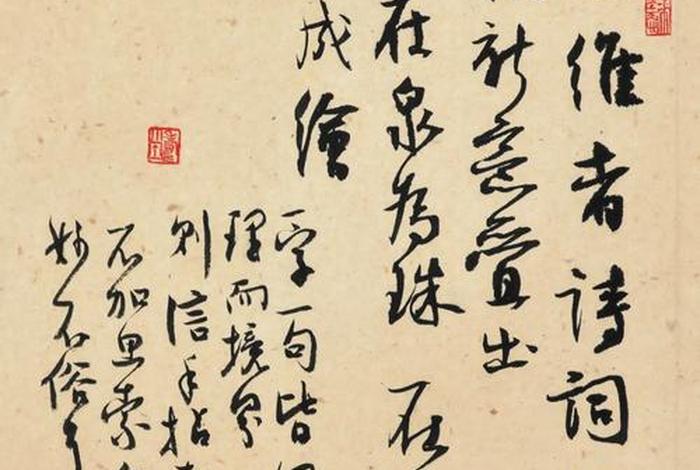 維者詩詞
新意疊出
在泉為珠 在
成繪
一字一句皆
理而境界
則信手拈
不加思索
妙不俗